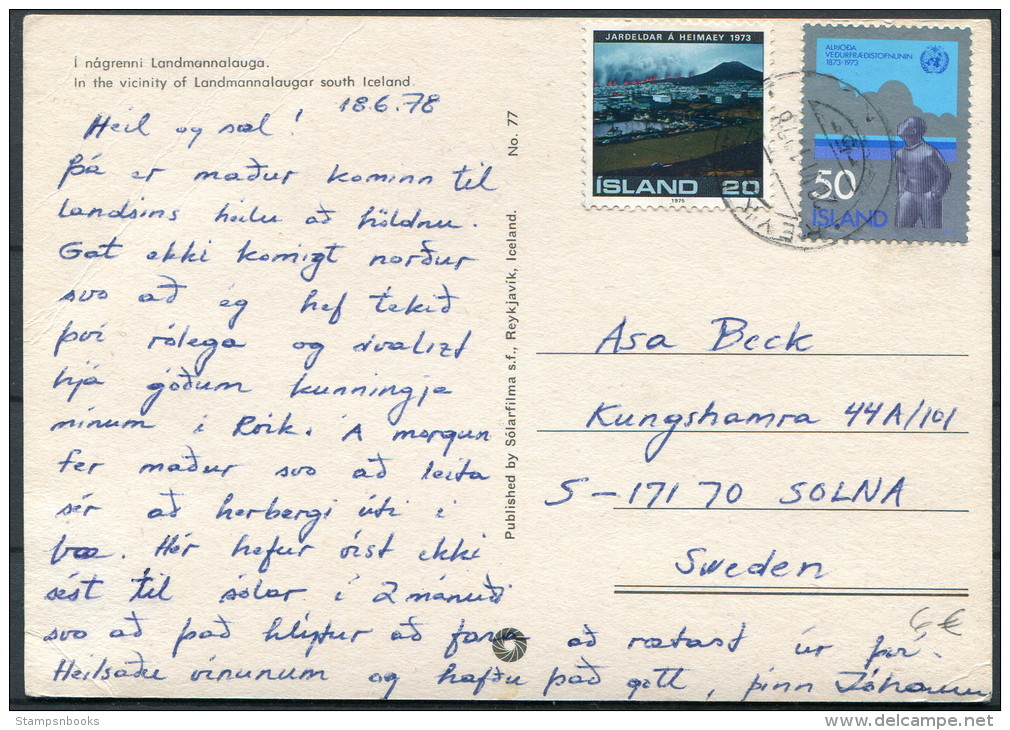 Í nágrenni Landmannalauga.
In the vicinity of Landmannalaugar south Iceland.
18.6.78
Heil og sæl!
Þá er maður kominn til
landsins heilu að höldnu.
Gat ekki komist norður
svo að ég hef tekið
því rólega og
hjá góðum kunningja
mínum í Rvík. A morgun
fer maður svo að leita
sér að herbergi úti í
bæ. Hér hefur víst ekki
sést til sólar í 2 mánuði
svo að það hlýtur að fara að rætast úr því.
Heilsaðu vinunum og hafðu það gott, þinn Jóhann
Published by Sólarfilma s.f., Reykjavik, Iceland. No. 77
JARÐELDAR Á HEIMAEY 1973
ÍSLAND 20
1975
ALÞJÓÐA
VEÐURFRÆÐISTOFNUNIN
1873-1973
50
ÍSLAND
Asa Beck
Kungshamra 44A/101
S-171 70 SOLNA
Sweden
6€
Stampsnbooks
www.delcampe.net